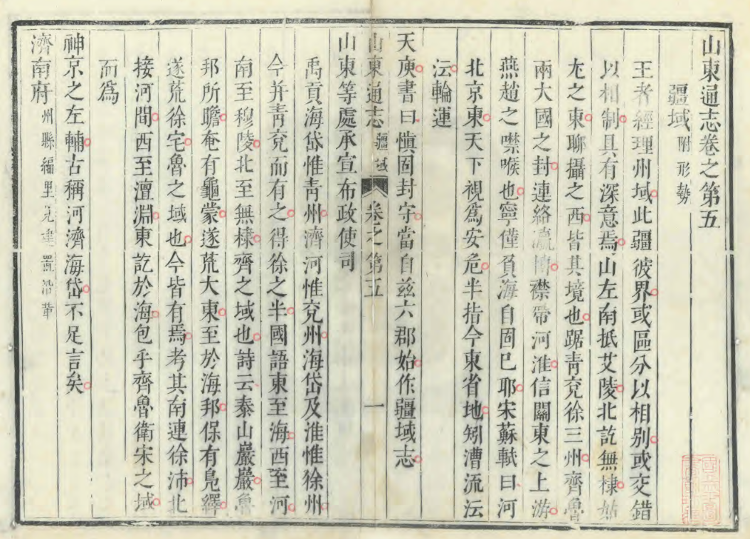 山東通志卷之第五
疆域附形勢
王者經理州域此疆彼界或區分以相别或交錯
以相制具有深意焉山左南抵艾陵北訖無棣姑
尤之東聊攝之西皆其境也踞青兗徐三州齊魯
兩大國之封連絡瀛博襟帶河淮信關東之上游
燕趙之噤喉也寧僅負海自固巳耶宋蘇軾曰河
北京東天下視為安危半指今東省地矧漕流沄
沄輪運
天庾書曰慎固封守當自兹六郡始作疆域志
山東通志 疆域 卷之第五 一
山東等處承宣布政使司
禹貢海岱惟青州濟河惟兗州海岱及淮惟徐州
今并青兗而有之得徐之半國語東至海西至河
南至穆陵北至無棣齊之域也詩云泰山巖巖魯
邦所瞻奄有龜蒙遂荒大東至於海邦保有鳧繹
遂荒徐宅魯之域也今皆有焉考其南連徐沛北
接河間西至澶淵東訖於海包乎齊魯衛宋之域
而為
神京之左輔古稱河濟海岱不足言矣
濟南府州縣編里見建置沿革